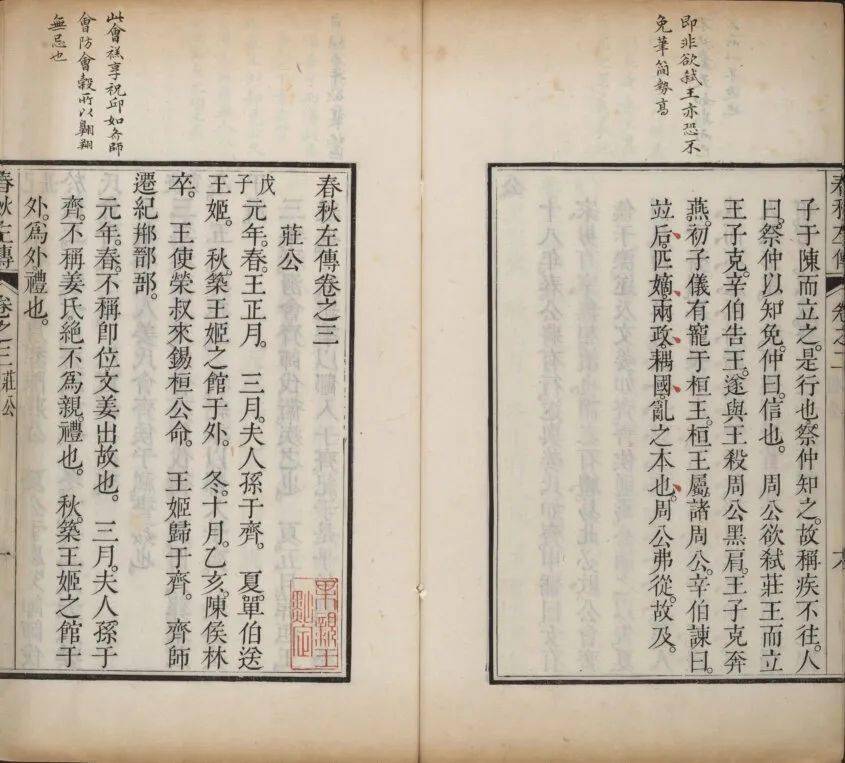 即非欲弑王亦恐不
免筆簡勢高
春秋左傳 卷之二
子于陳而立之。是行也。祭仲知之。故稱疾不往。人
曰。祭仲以知免。仲曰。信也。 周公欲弑莊王而立
王子克。辛伯告王。遂與王殺周公黑肩。王子克奔
燕。初子儀有寵于桓王。桓王屬諸周公。辛伯諫曰。
竝后。匹嫡。兩政。耦國。亂之本也。周公弗從。故及。
此會禚享祝邱如齊師
會防會穀所以翱翔
無忌也
春秋左傳卷之三
莊公
戊子 元年。春。王正月。 三月。夫人孫于齊。 夏。單伯送
王姬。 秋。築王姬之館于外。 冬。十月。乙亥。陳侯林
卒。 王使榮叔來錫桓公命。 王姬歸于齊。 齊師
遷紀郱鄑郚。
元年。春。不稱卽位。文姜出故也。 三月。夫人孫于
齊。不稱姜氏。絕不爲親。禮也。 秋。築王姬之館于
外。爲外禮也。
春秋左傳 卷之三 莊公 一